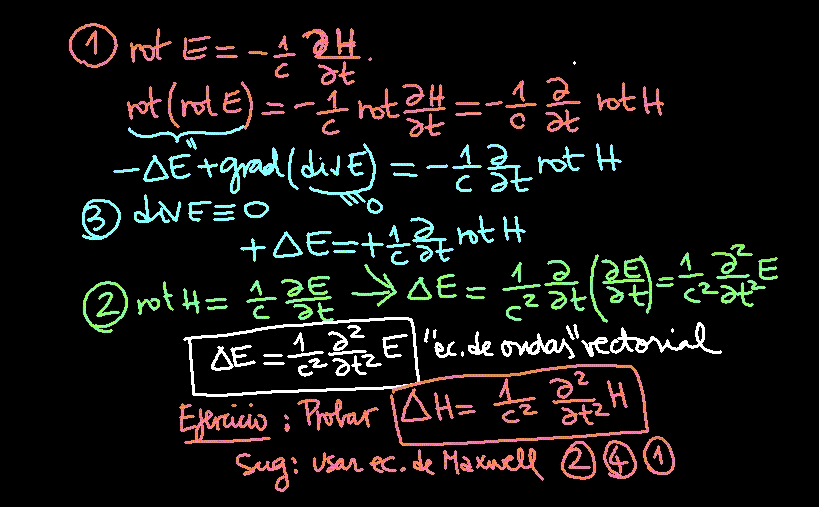 ① rot E = - 1/c ∂H/∂t.
rot(rot E) = - 1/c rot ∂H/∂t = - 1/c ∂/∂t rot H
- ΔE + grad(div E) = - 1/c ∂/∂t rot H
③ div E ≡ 0 0
+ ΔE = + 1/c ∂/∂t rot H
② rot H = 1/c ∂E/∂t → ΔE = 1/c² ∂/∂t (∂E/∂t) = 1/c² ∂²/∂t² E
ΔE = 1/c² ∂²/∂t² E "ec. de ondas" vectorial
Ejercicio : Probar ΔH = 1/c² ∂²/∂t² H
Sug: usar ec. de Maxwell ② ④ ①